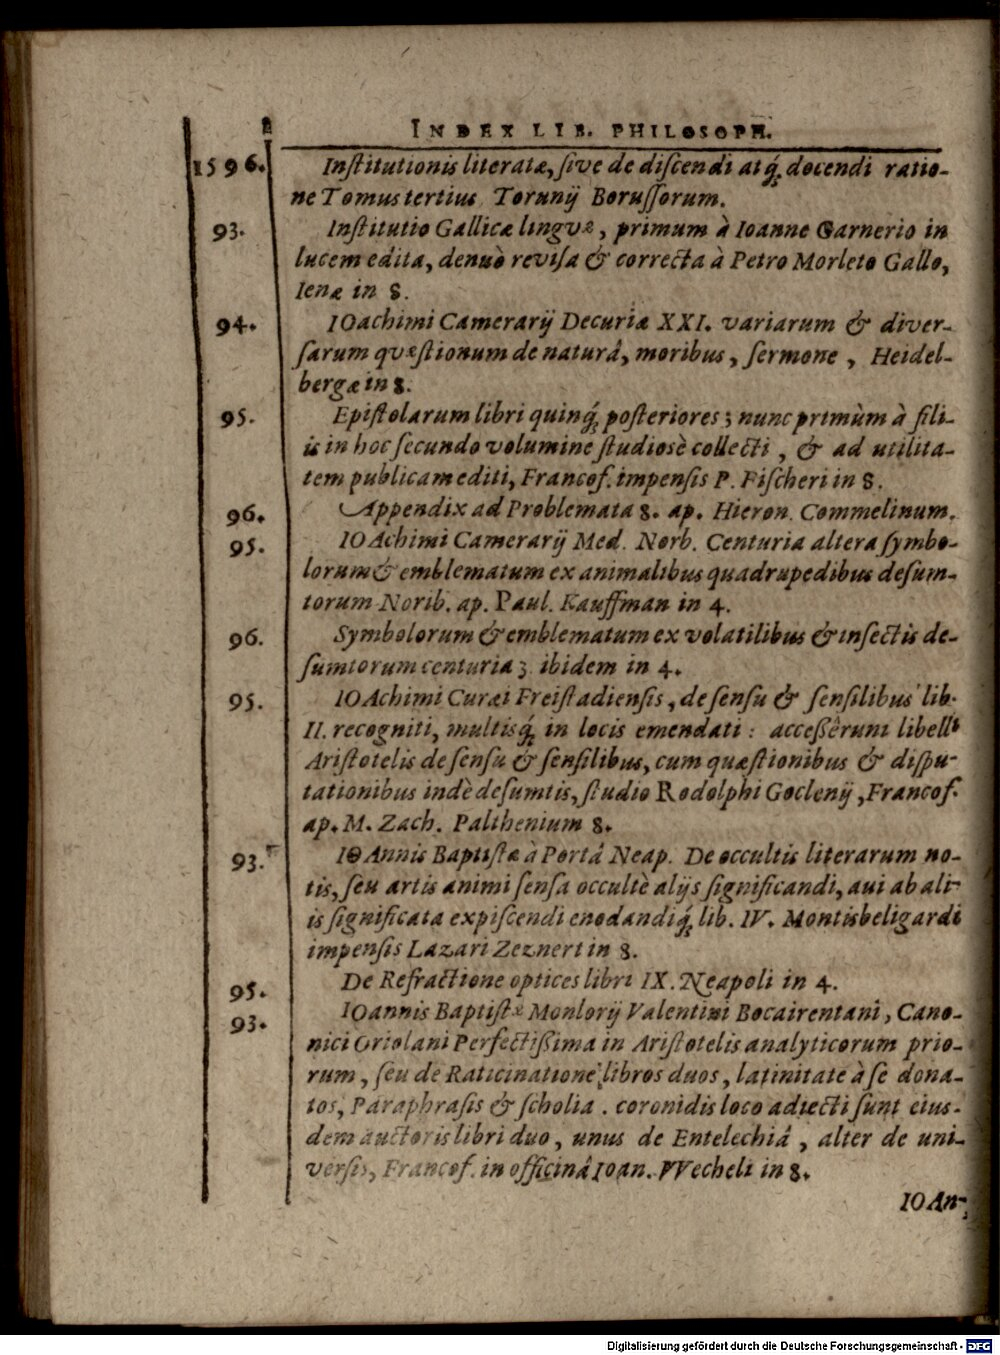 INDEX LIB. PHILOSOPH.
1596. Inſtitutionis literatæ, ſive de diſcendi atq́; docendi ratio-
ne Tomus tertius Torunij Boruſſorum.
93. Inſtitutio Gallicæ lingvæ, primum à Ioanne Garnerio in
lucem edita, denuò reviſa & correcta à Petro Morleto Gallo,
Ienæ in 8.
94. IOachimi Camerarij Decuriæ XXI. variarum & diver-
ſarum quæſtionum de naturâ, moribus, ſermone, Heidel-
bergæ in 8.
95. Epiſtolarum libri quinq́; poſteriores; nunc primùm à fili-
is in hoc ſecundo volumine ſtudiosè collecti, & ad utilita-
tem publicam editi, Francof. impenſis P. Fiſcheri in 8.
96. Appendix ad Problemata 8. ap. Hieron. Commelinum.
95. IOAchimi Camerarij Med. Norb. Centuria altera ſymbo-
lorum & emblematum ex animalibus quadrupedibus deſum-
torum Norib. ap. Paul. Kauffman in 4.
96. Symbolorum & emblematum ex volatilibus & inſectis de-
ſumtorum centuria 3 ibidem in 4.
95. IOAchimi Curæi Freiſtadienſis, de ſenſu & ſenſilibus lib.
II. recogniti, multisq́; in locis emendati: acceßêrunt libelli
Ariſtotelis de ſenſu & ſenſilibus, cum quæſtionibus & diſpu-
tationibus indè deſumtis, ſtudio Rodolphi Goclenij, Francof.
ap. M. Zach. Palthenium 8.
93. IOAnnis Baptiſtæ à Portâ Neap. De occultis literarum no-
tis, ſeu artis animi ſenſa occultè alijs ſignificandi, aui ab ali-
is ſignificata expiſcendi enodandiq́; lib. IV. Montisbeligardi
impenſis Lazari Zeznert in 8.
95. De Refractione optices libri IX. Neapoli in 4.
93. IOannis Baptiſtæ Monlorij Valentini Bocairentani, Cano-
nici Oriolani Perfectißima in Ariſtotelis analyticorum prio-
rum, ſeu de Raticinatione libros duos, latinitate à ſe dona-
tos, Paraphraſis & ſcholia. coronidis loco adiecti ſunt eius-
dem auctoris libri duo, unus de Entelechiâ, alter de uni-
verſis, Francof. in officinâ Ioan. VVecheli in 8.
IOAn-
Digitalisierung gefördert durch die Deutsche Forschungsgemeinschaft - DFG